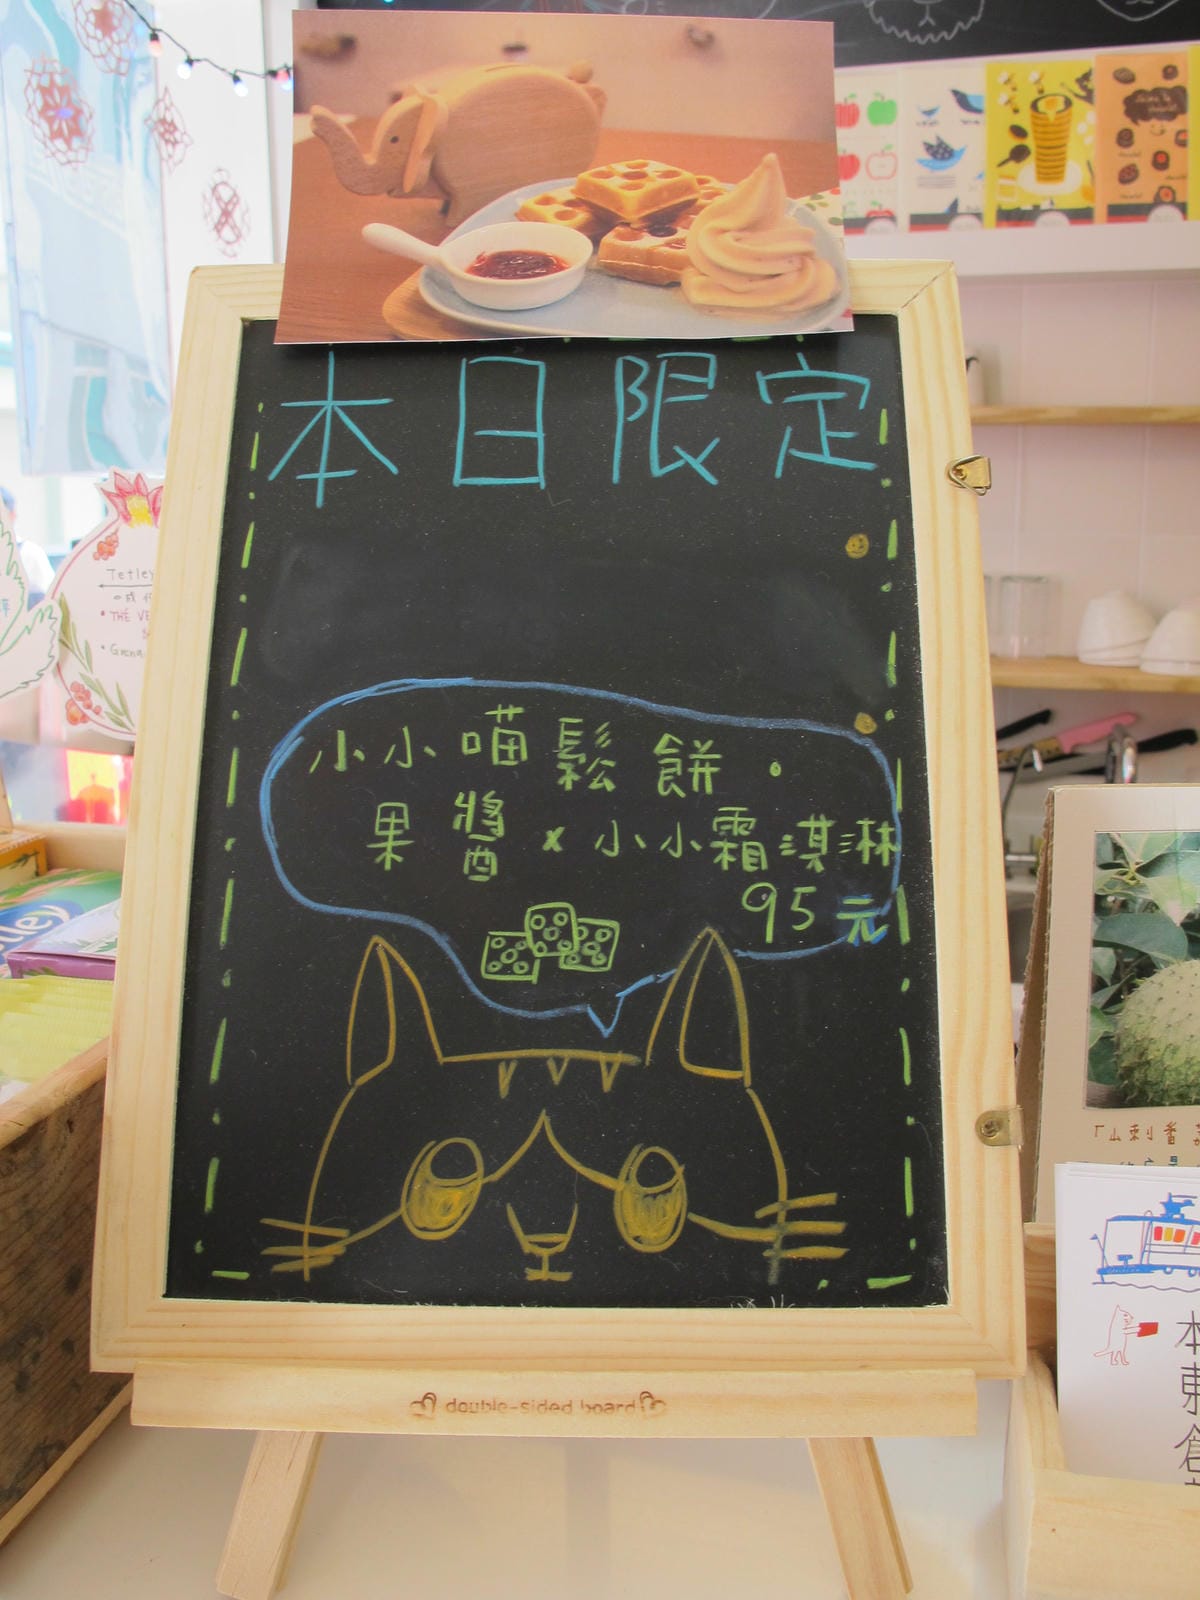 本日限定
小小喵鬆餅·
果醬x小小霜淇淋
95元
double-sided board
Tetley
THÉ VE
刺番
本東創